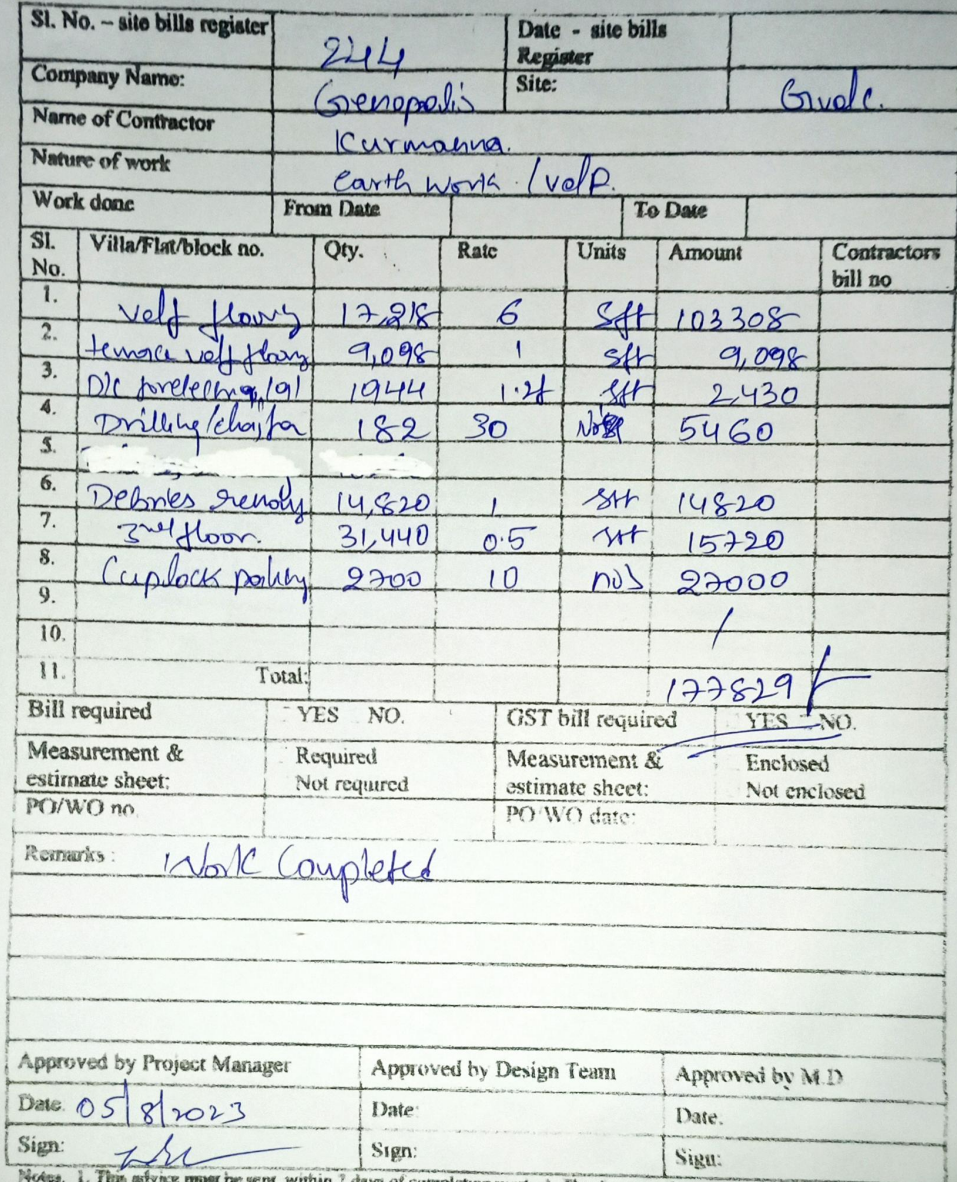 Sl. No. – site bills register 244 Date - site bills Register
Company Name: Genopolis Site: Gvdc.
Name of Contractor Kurmanna.
Nature of work earth work /
Work done From Date To Date
Sl. No. Villa/Flat/block no. Qty. Rate Units Amount Contractors bill no
1. 17,218 6 Sft 103308
2. 9,098 1 sft 9,098
3. 1944 sft 2,430
4. Drilling 182 30 Nos 5460
5.
6. Debries 14,820 1 sft 14820
7. 3rd floor. 31,440 0.5 sft 15720
8. Cuplock 2700 10 nos 27000
9.
10.
11. Total: 177829/-
Bill required YES NO. GST bill required YES NO.
Measurement & estimate sheet: Required Not required Measurement & estimate sheet: Enclosed Not enclosed
PO/WO no. PO/WO date:
Remarks : Work Completed
Approved by Project Manager Approved by Design Team Approved by M.D
Date. 05/8/2023 Date: Date.
Sign: Sign: Sign:
Notes. 1. This advice must be sent within 7 days of